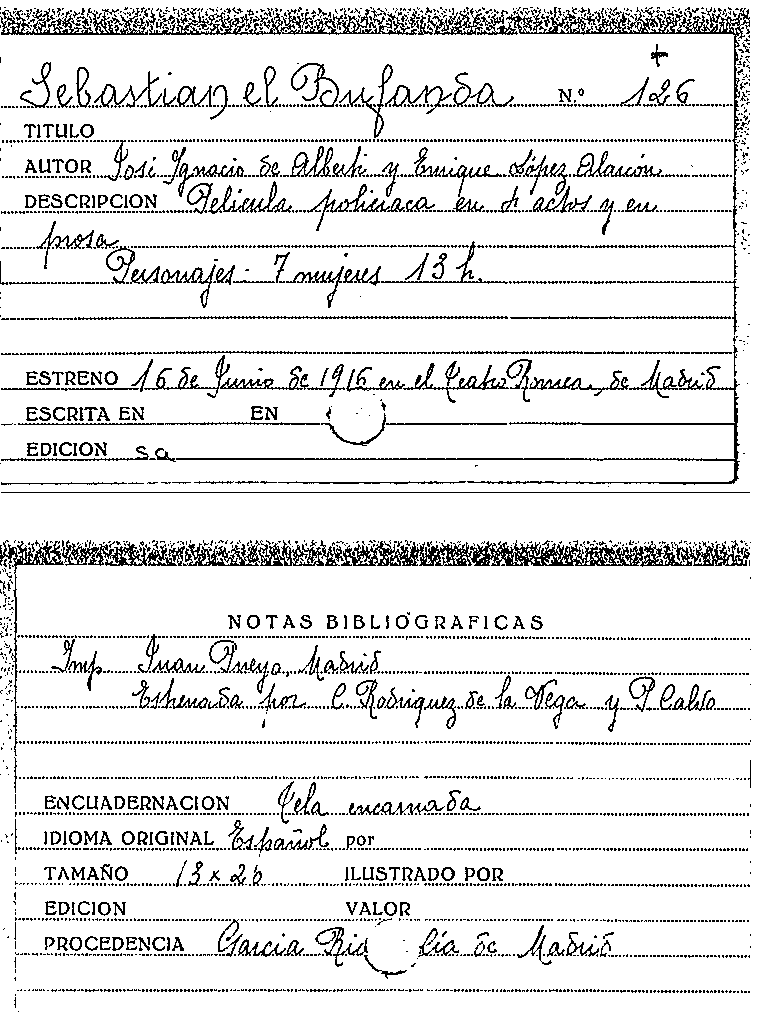 Sebastian el Bufanda N.º 126
TITULO
AUTOR José Ignacio de Alberti y Enrique López Alarcón
DESCRIPCION Pelicula policiaca en 4 actos y en
prosa
Personajes: 7 mujeres 13 h.
ESTRENO 16 de Junio de 1916 en el Teatro Romea, de Madrid
ESCRITA EN EN
EDICION sa
NOTAS BIBLIOGRAFICAS
Imp. Juan Pueyo, Madrid
Estrenada por C. Rodriguez de la Vega y P. Calvo
ENCUADERNACION Tela encarnada
IDIOMA ORIGINAL Español por
TAMAÑO 13 x 20 ILUSTRADO POR
EDICION VALOR
PROCEDENCIA Garcia de Madrid